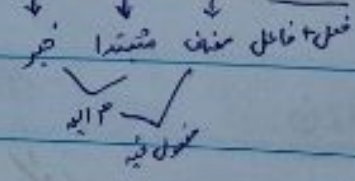 فعل + فاعل مضاف مبتدا خبر
م الیہ
مفعول فیہ